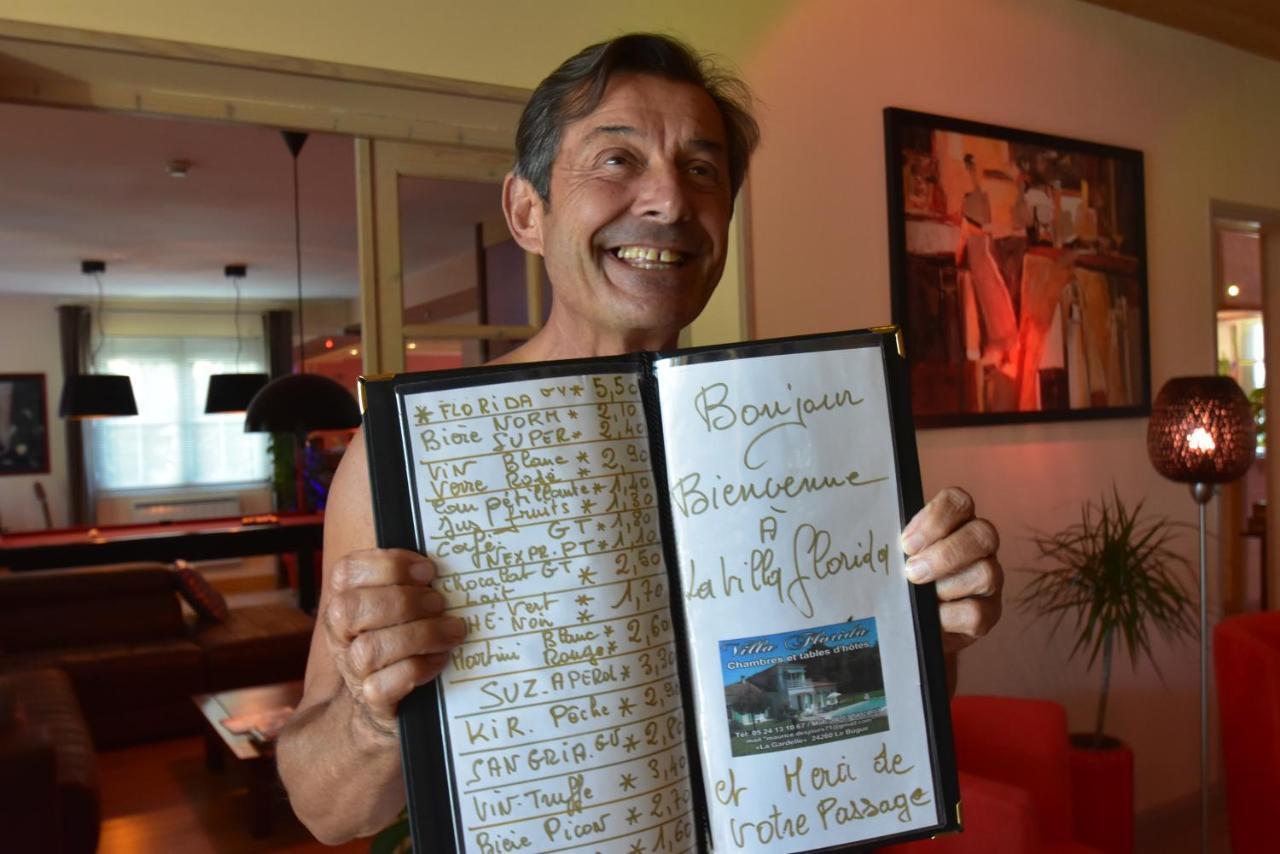 * FLORIDA GV * 5,50
Bière NORM * 2,10
SUPER * 2,40
Vin Blanc * 2,90
Verre Rosé *
Eau pétillante * 1,40
Jus fruits * 1,80
Café GT * 1,80
NEXPR. PT * 1,10
Chocolat GT * 2,50
Lait
THÉ Vert * 1,70
Noir
Martini Blanc * 2,60
Rouge *
SUZ. APEROL * 3,30
KIR. Pêche * 2,90
SANGRIA. * 2,80
VIN-Truffe * 3,40
Bière Picon * 2,70
* 1,60
Bonjour
Bienvenue
À
La Villa Florida
Villa Florida
Chambres et tables d'hôtes
Tél: 05 24 13 10 67 /
mail "maurice.desjours71@gmail.com
«La Gardelle» 24260 Le Bugue
et Merci de
Votre Passage